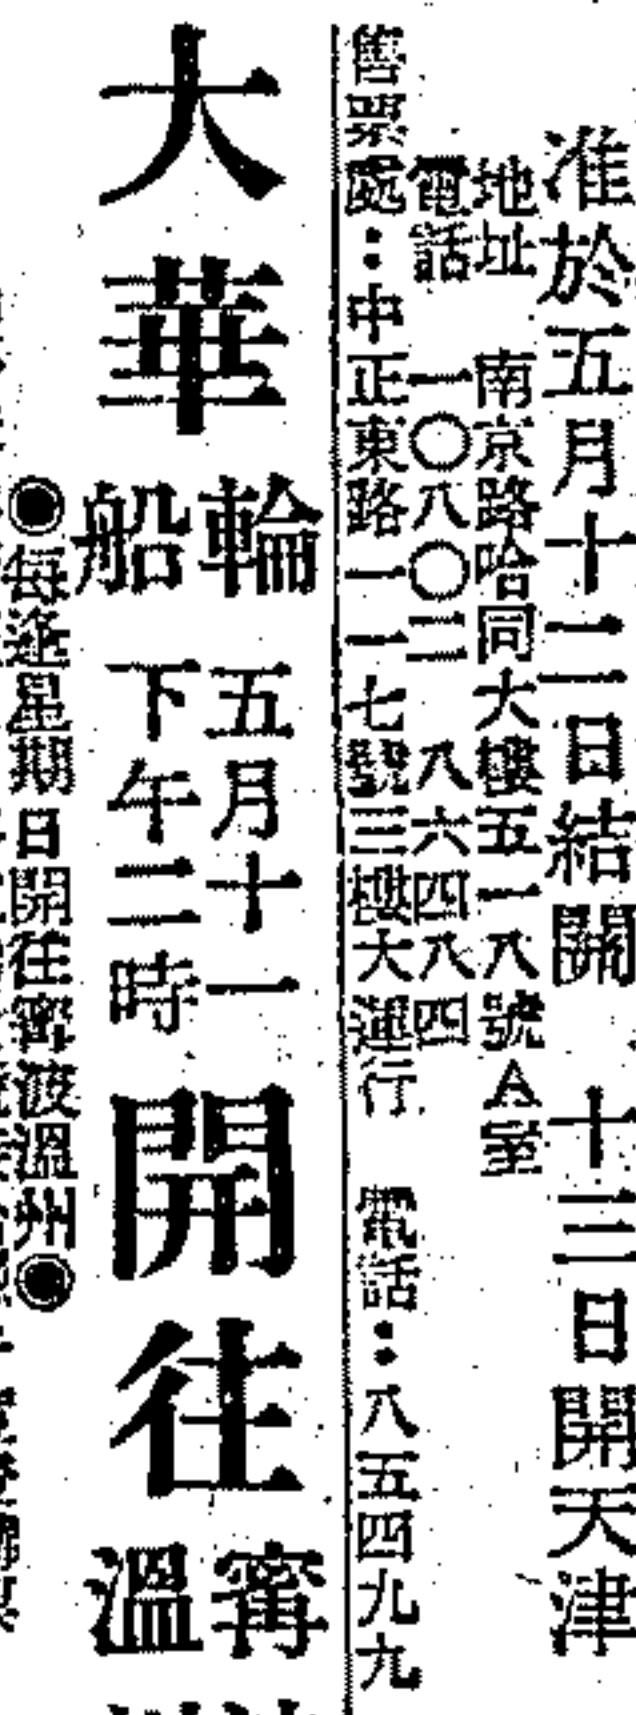 准於五月十二日結關 十三日開天津
地址 南京路哈同大樓五一八號A室
電話 一〇八〇三 八六四八四
售票處：中正東路一一七號三樓大運行 電話：八五四九九
大華輪船 五月十一下午二時 開往 甯 溫
◉每逢星期日開往甯波溫州◉